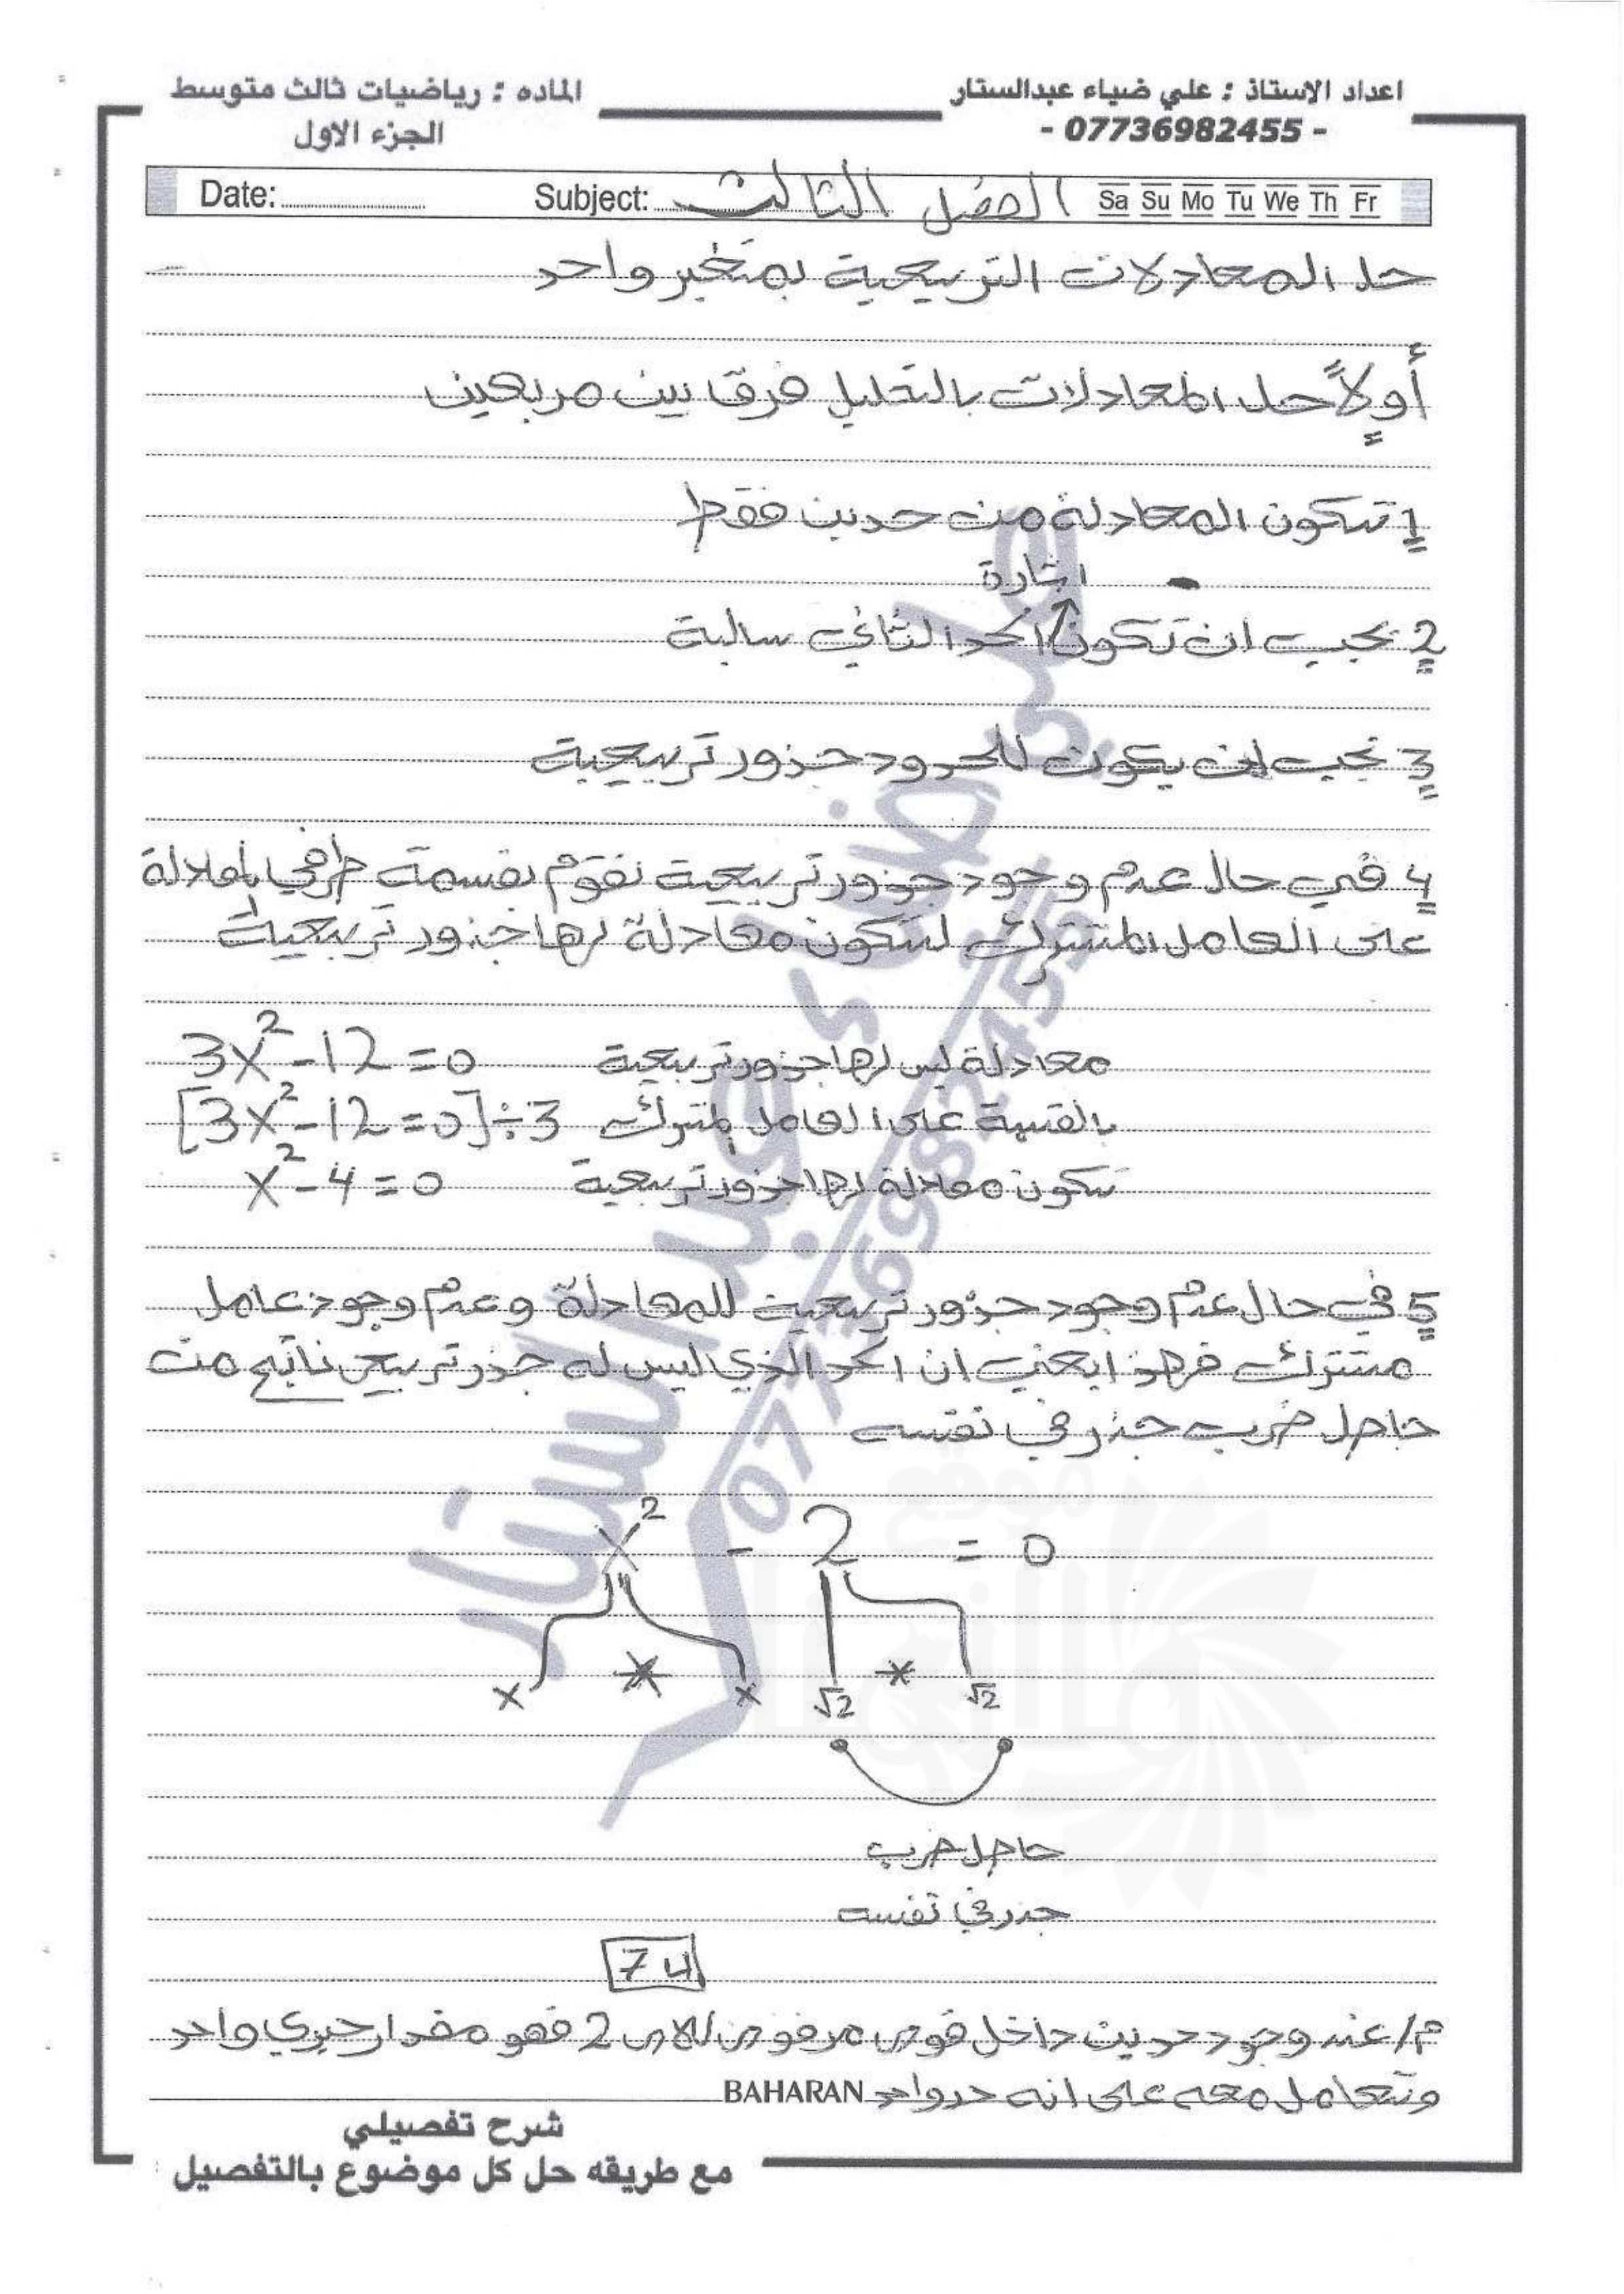 اعداد الاستاذ : علي ضياء عبدالستار
- 07736982455 -
الماده : رياضيات ثالث متوسط
الجزء الاول
Date: Subject: الفصل الثالث Sa Su Mo Tu We Th Fr
حل المعادلات التربيعية بمتغير واحد
أولاً حل المعادلات بالتحليل فرق بين مربعين
1 تتكون المعادلة من حدين فقط
اشارة
2 يجب ان تكون الحد الثاني سالبة
3 يجب ان يكون للحدود جذور تربيعية
4 في حال عدم وجود جذور تربيعية نقوم بقسمة طرفي المعادلة
على العامل المشترك لتكون معادلة لها جذور تربيعية
معادلة ليس لها جذور تربيعية 3x² - 12 = 0
بالقسمة على العامل المشترك [3x² - 12 = 0] ÷ 3
تتكون معادلة لها جذور تربيعية x² - 4 = 0
5 في حال عدم وجود جذور تربيعية للمعادلة وعدم وجود عامل
مشترك فهذا يعني ان الحد الذي ليس له جذر تربيعي ناتج من
حاصل ضرب جذر في نفسه
x² - 2 = 0
x * x √2 * √2
حاصل ضرب
جذر في نفسه
74
م/ عند وجود حدين داخل قوس مرفوع للاس 2 فهو مقدار جبري واحد
ونتعامل معه على انه حد واحد
BAHARAN
شرح تفصيلي
مع طريقه حل كل موضوع بالتفصيل
علي ضياء عبد الستار
07736982455